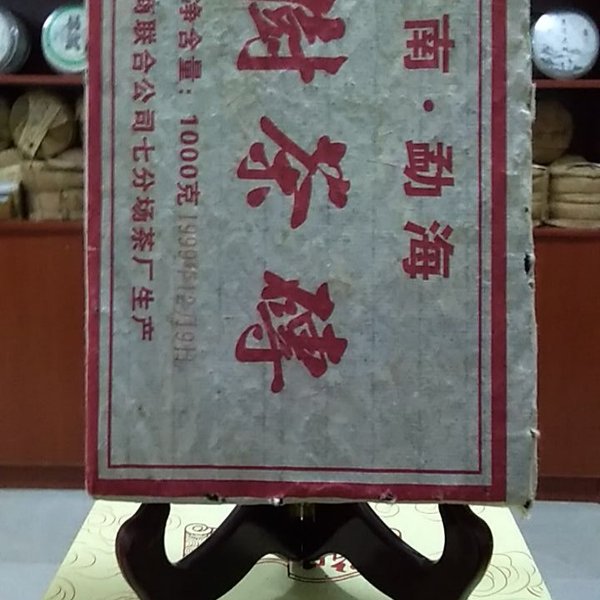 南·勐海
樹茶磚
净含量：1000克 1999年12月9日
商联合公司七分场茶厂生产